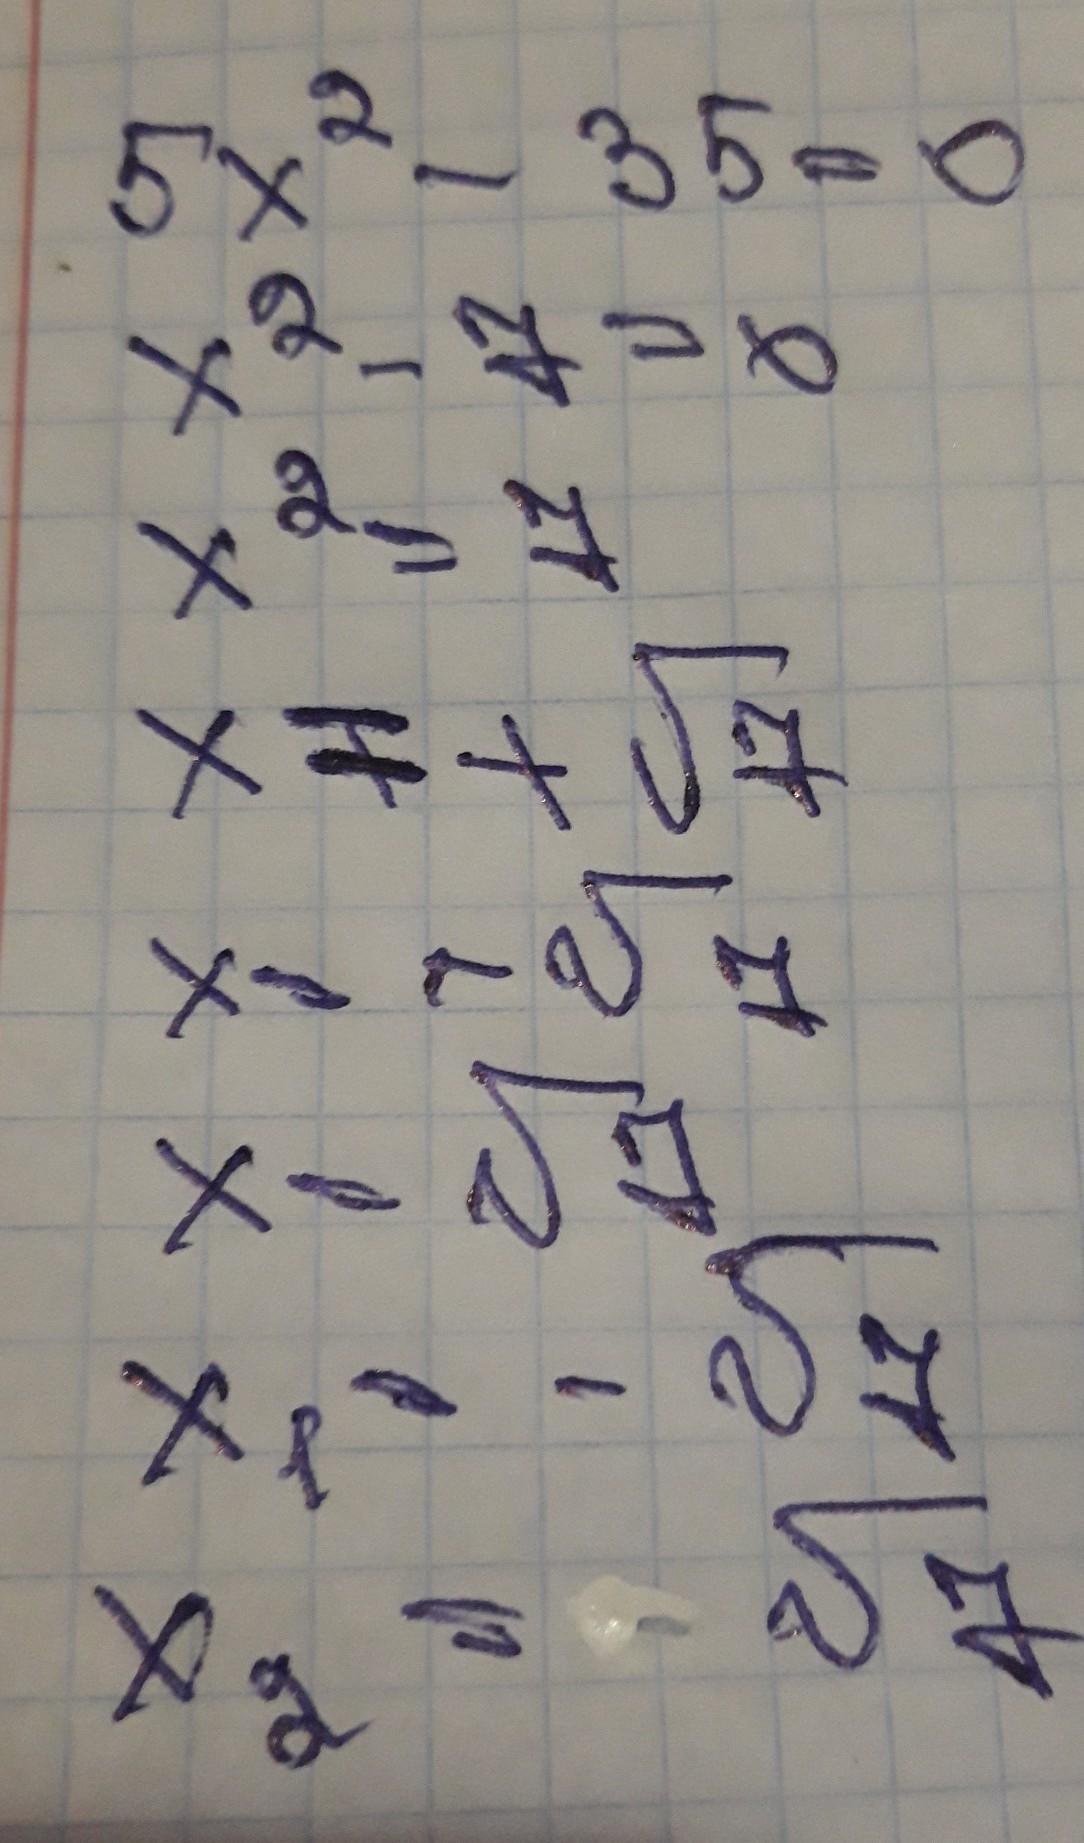 5x² - 35 = 0
x² - 7 = 0
x² = 7
x = + √7
x = - √7
x = √7
x₁ = - √7
x₂ = √7